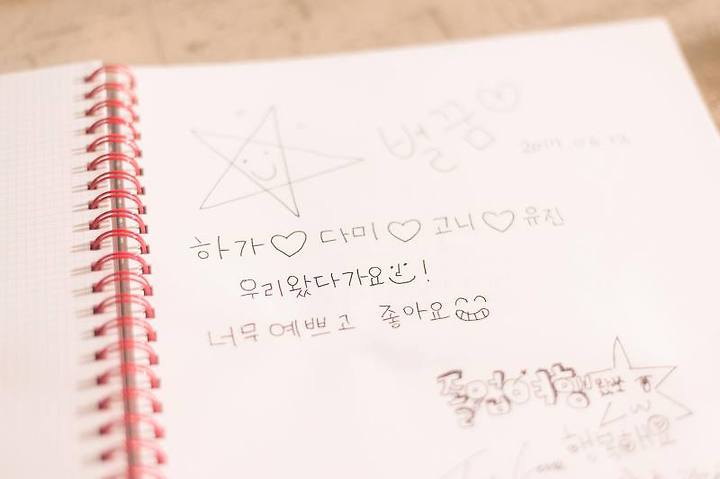 별꿈♡
하가♡다미♡고니♡유진
우리왔다가요!
너무예쁘고 좋아요
졸업여행
행복해요